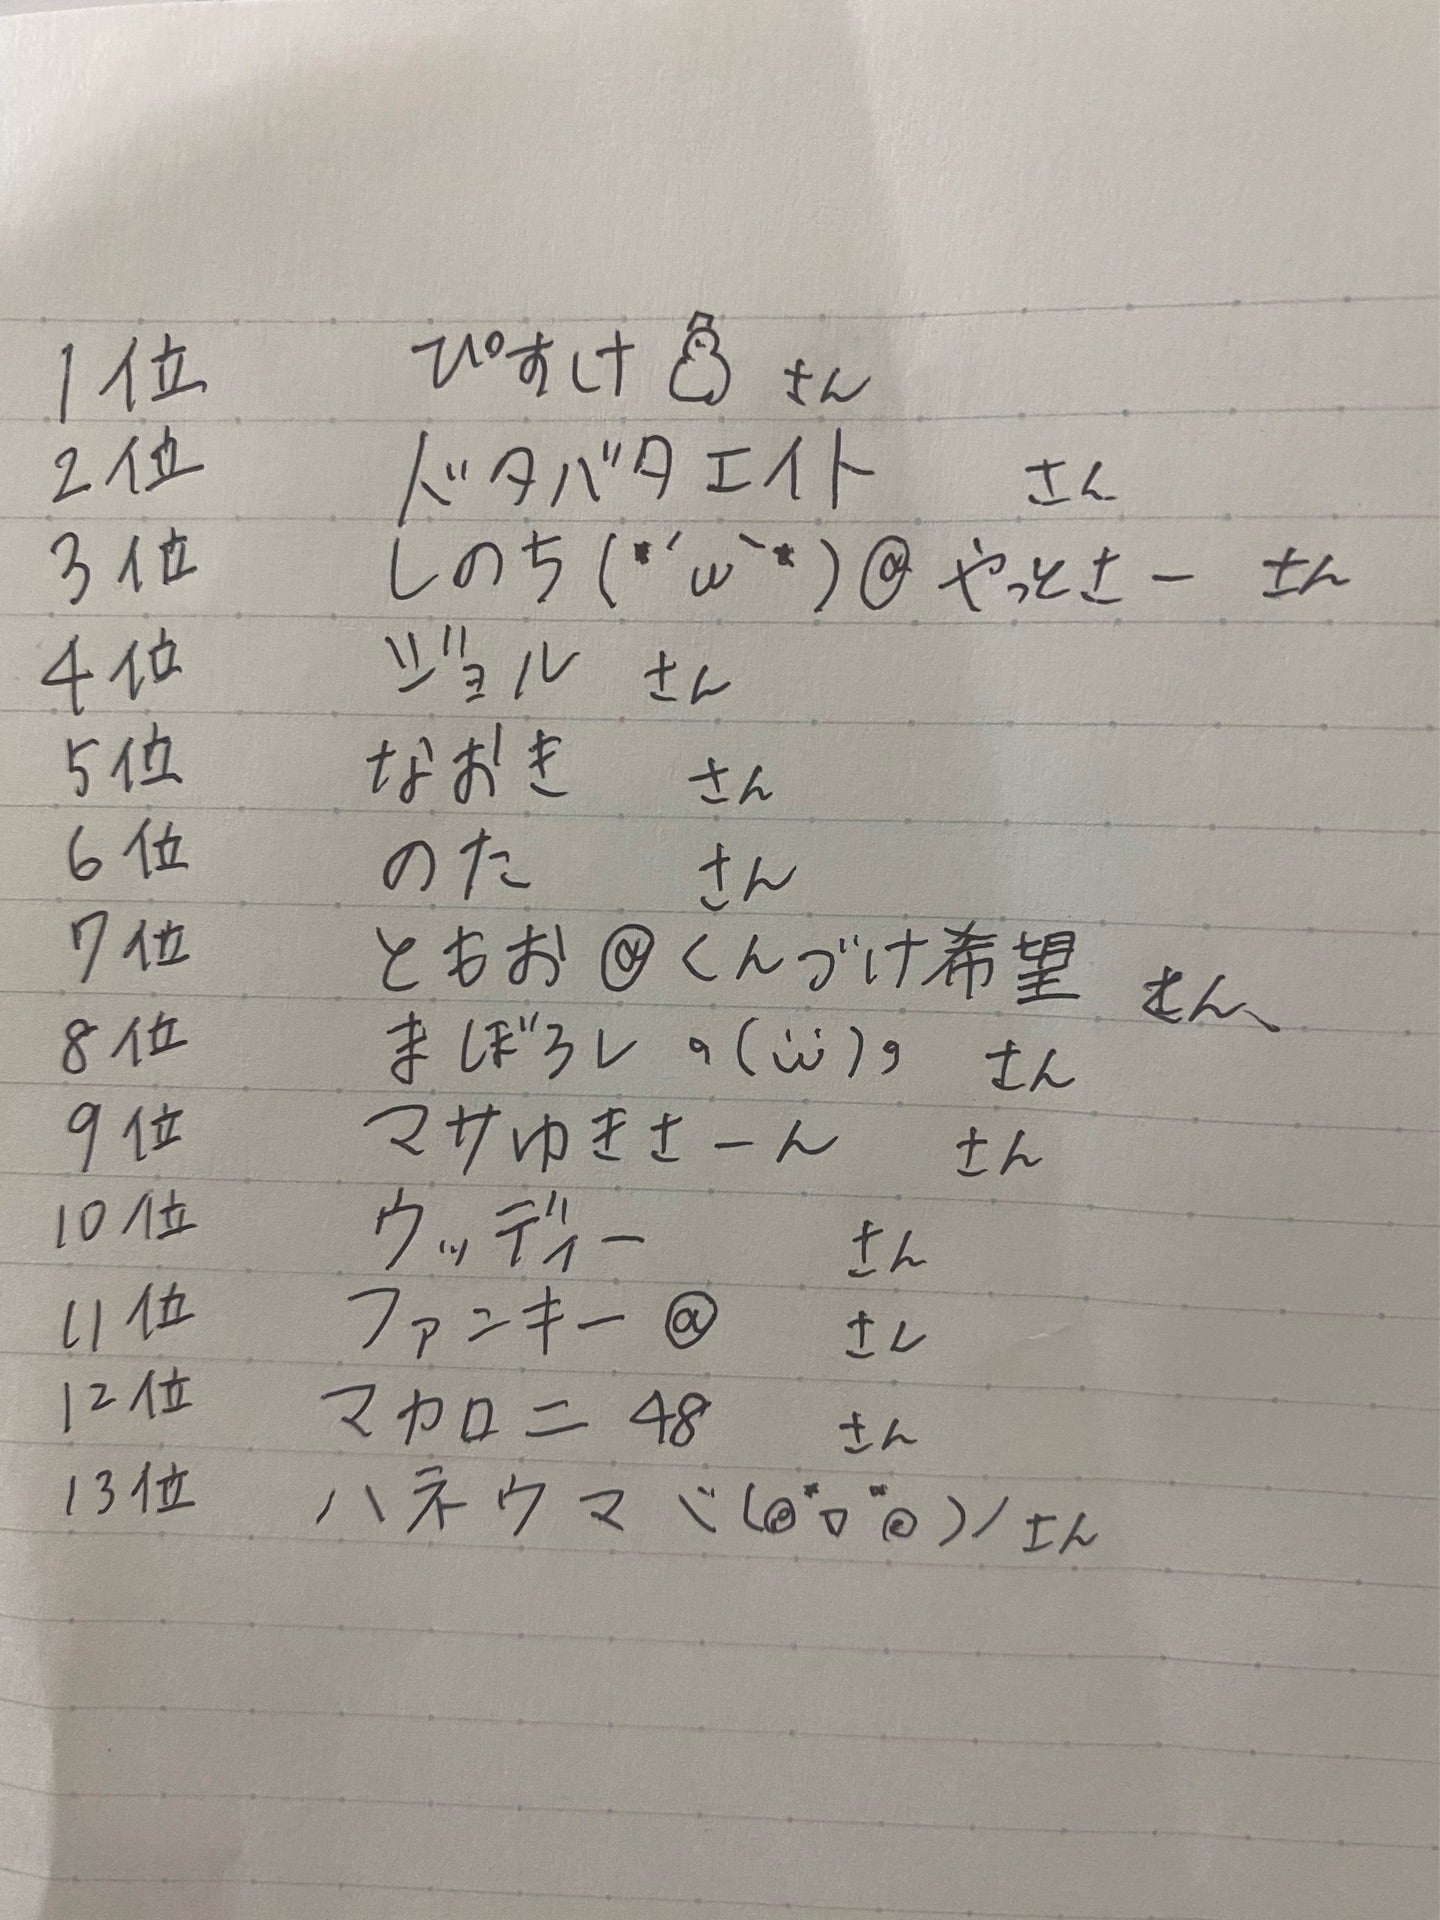 1位 ぴすけ⛄さん
2位 ドタバタエイト さん
3位 しのち(*´ω`*)@やっとさー さん
4位 ジョル さん
5位 なおき さん
6位 のた さん
7位 ともお@くんづけ希望 さん、
8位 まぼろし ٩(ӥ)و さん
9位 マサゆきさーん さん
10位 ウッディー さん
11位 ファンキー@ さん
12位 マカロニ48 さん
13位 ハネウマヾ(◎*▽*◎)ノさん